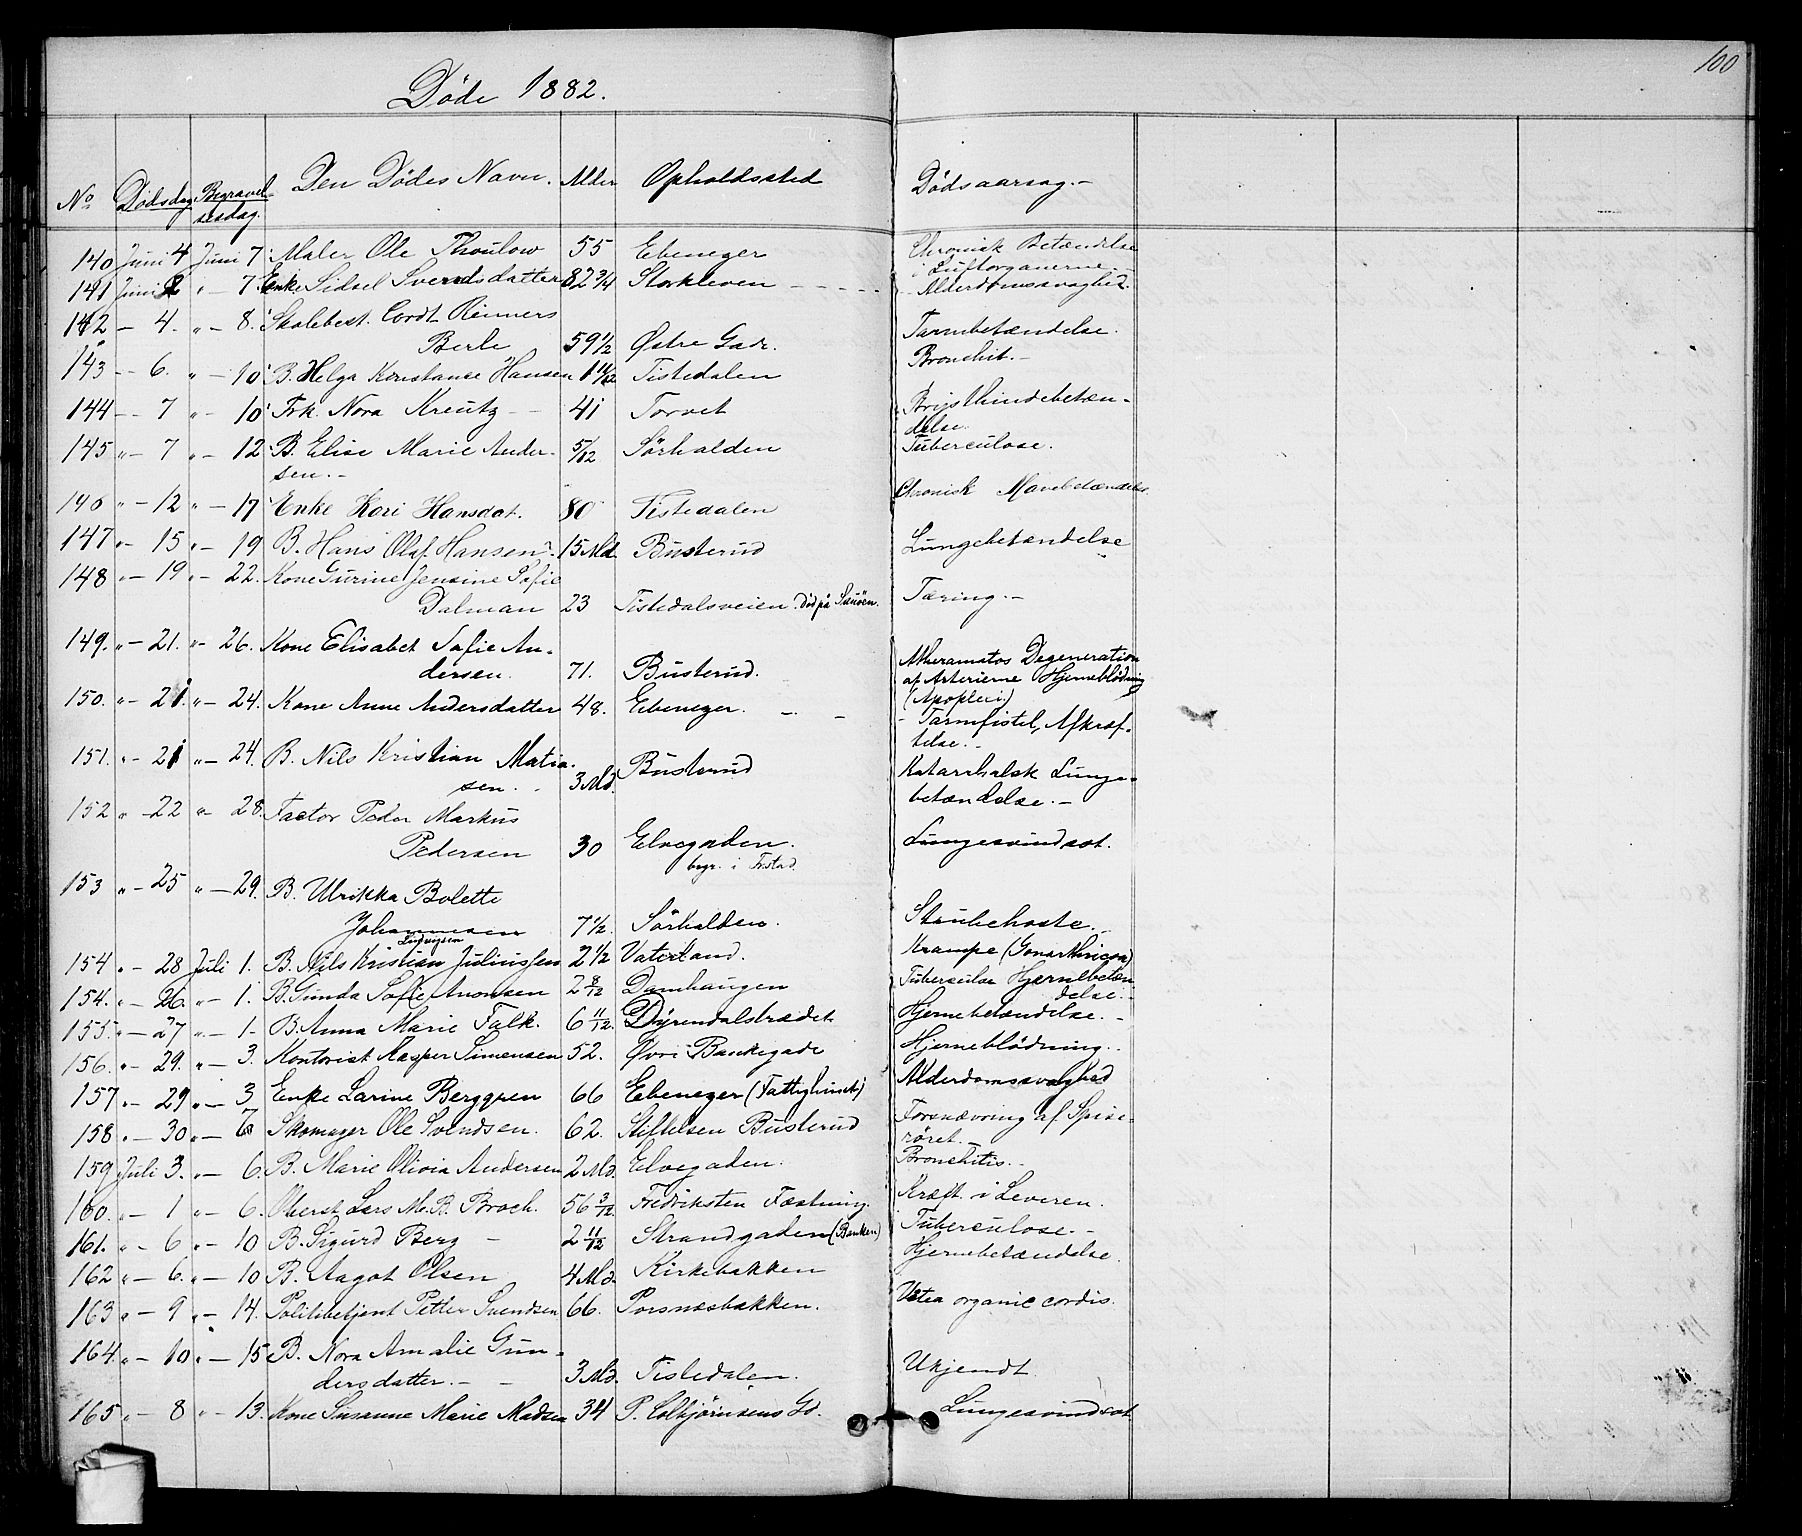 100
Døde 1882.
No Dødsdag. Begravel- Den Dødes Navn. Alder Opholdssted Dødsaarsag.-
sesdag.
140 Juni 4 Juni 7 Maler Ole Thoulow 55 Ebenezer Chronisk Betændelse
i Luftorganerne.
141 Juni 2 " - 7. Enke Sidsel Svendsdatter 82 3/4 Storkleven - - - - Alderdomssvaghed.
142 - 4. " - 8. Skolebest. Cordt Reimers
Berle 59 1/2 Østre Gade. Tarmbetændelse.
143 - - 6. " - 10 B. Helga Konstanse Hansen 1 11/12 Tistedalen Bronchit.-
144 - - 7 " - 10 Frk. Nora Kreutz - - 41 Torvet Brysthindebetæn-
delse.
145 " - 7 " - 12 B. Elise Marie Ander- 5/12 Sörhalden Tuberculose.
sen.-
146 " - 12 " - 17 Enke Kari Hansdat. 80 Tistedalen Chronisk Mavebetændelse
147 " - 15 " - 19 B. Hans Olaf Hansen. 15 Md. Busterud Lungebetændelse
148 " - 19 " - 22. Kone Gurine Jensine Sofie
Dalman 23 Tistedalsveien. Död på Sauöen. Tæring.-
149. " - 21. " - 26. Kone Elisabet Sofie An-
dersen. 71. Busterud. Atheromatøs Degeneration
af Arterierne Hjerneblödning
(Apoplexi.)
150. " - 21. " - 24. Kone Anne Andersdatter 48. Ebenezer. - - - Tarmfistel, Afkræf-
telse.-
151. " - 21 " - 24. B. Nils Kristian Matia-
sen. - 3 Md. Busterud Katarrhalsk Lunge-
betændelse.-
152 " - 22 " - 28. Factor Peder Markus
Pedersen 30 Elvegaden. Lungesvindsot.
begr. i Fr.stad.
153 " - 25 " - 29. B. Ulrikka Bolette
Johannesen 7 1/2. Sörhalden. Strubehoste.
Ludvigsen
154 " - 28 Juli 1. B. Nils Kristian Juliussen 2 1/2 Vaterland. Krampe
154. " - 26. " - 1. B. Gunda Sofie Aronsen 2 8/12 Damhaugen Tuberculos Hjernebetæn-
delse.-
155. " - 27 " - 1. B. Anna Marie Falk. 6 11/12. Dyrendalstrædet Hjernebetændelse.-
156. " - 29. " - 3. Kontorist Kasper Simensen 52. Øvre Bankegade Hjerneblödning.
157 " - 29 " - 3 Enke Larine Berggren 66 Ebenezer (Fattighuset) Alderdomssvaghed
158 " - 30 " - 7 Skomager Ole Svendsen. 62. Stiftelsen Busterud Forsnævring af Spise-
röret.-
159 Juli 3. " - 6. B. Marie Olivia Andersen 2 Md. Elvegaden. Bronchitis.
160. " - 1 " - 6. Oberst Lars M. B. Broch. 56 3/12 Fredriksten Fæstning. Kræft i Leveren.
161. " - 6 " - 10 B. Sigurd Berg - 2 11/12 Strandgaden (Banken) Tuberculose.-
162 " - 6. " - 10 B. Aagot Olsen 4 Md. Kirkebakken Hjernebetændelse.
163 " - 9 " - 14. Politibetjent Petter Svendsen 66. Porsnæsbakken. Vitea organic cordis.
164. " - 10 " - 15 B. Nora Amalie Gun-
dersdatter.- - 3 Md. Tistedalen. Ukjendt.
165 " - 8 " - 13. Kone Susanne Marie Madsen 34 P. Colbjörnsens Gd. Lungesvindsot